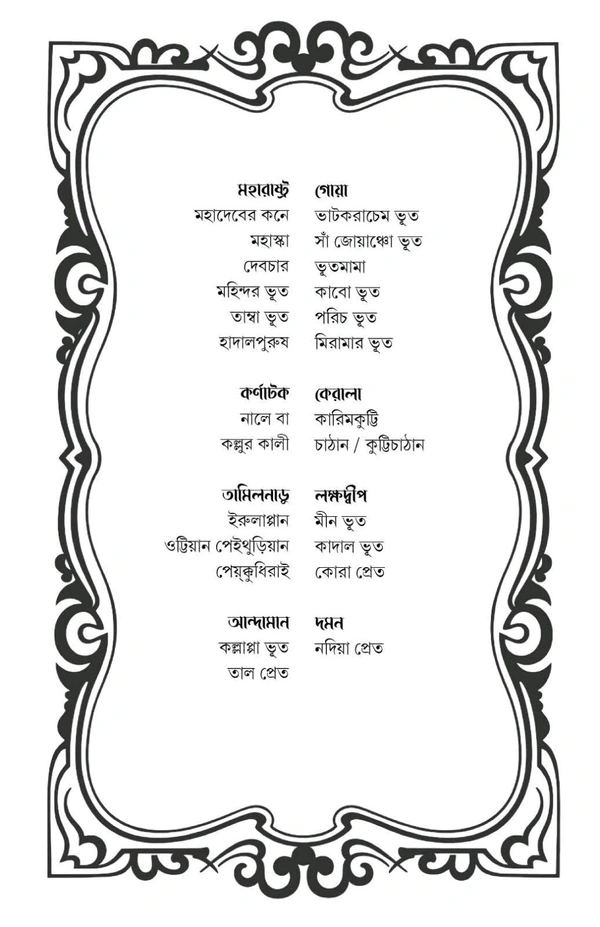 মহারাষ্ট্র
মহাদেবের কনে
মহাস্কা
দেবচার
মহিন্দর ভূত
তাম্বা ভূত
হাদালপুরুষ
গোয়া
ভাটকরাচেম ভূত
সাঁ জোয়াঞ্চো ভূত
ভূতমামা
কাবো ভূত
পরিচ ভূত
মিরামার ভূত
কর্ণাটক
নালে বা
কল্লুর কালী
কেরালা
কারিমকুট্টি
চাঠান / কুট্টিচাঠান
তামিলনাড়ু
ইরুলাপ্পান
ওট্টিয়ান পেইথুড়িয়ান
পেয়্ক্কুধিরাই
লক্ষদ্বীপ
মীন ভূত
কাদাল ভূত
কোরা প্রেত
আন্দামান
কল্লাপ্পা ভূত
তাল প্রেত
দমন
নদিয়া প্রেত